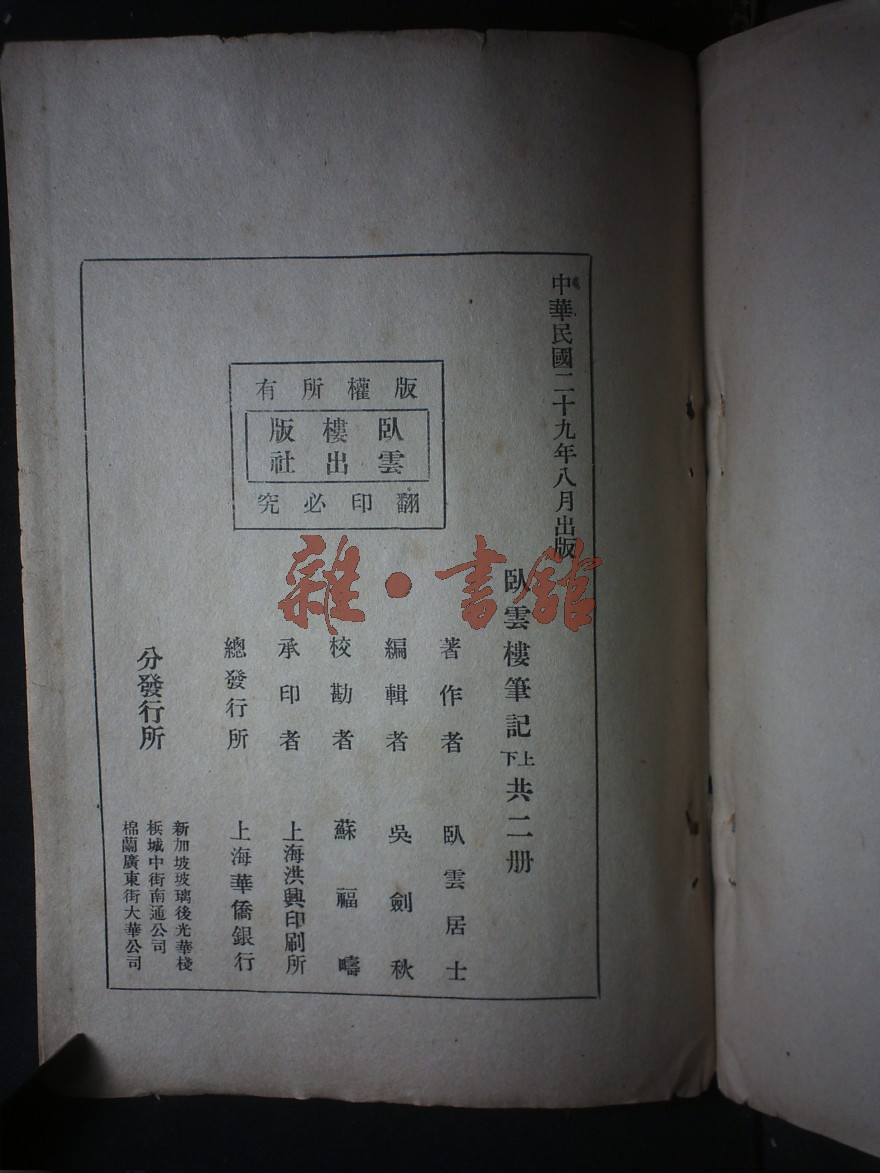 中華民國二十九年八月出版
臥雲樓筆記上下共二册
著作者 臥雲居士
編輯者 吳劍秋
校勘者 蘇福疇
承印者 上海洪興印刷所
總發行所 上海華僑銀行
分發行所
新加坡玻璃後光華棧
梹城中街南通公司
棉蘭廣東街大華公司
版權所有
臥雲樓出版社
翻印必究
雜·書館